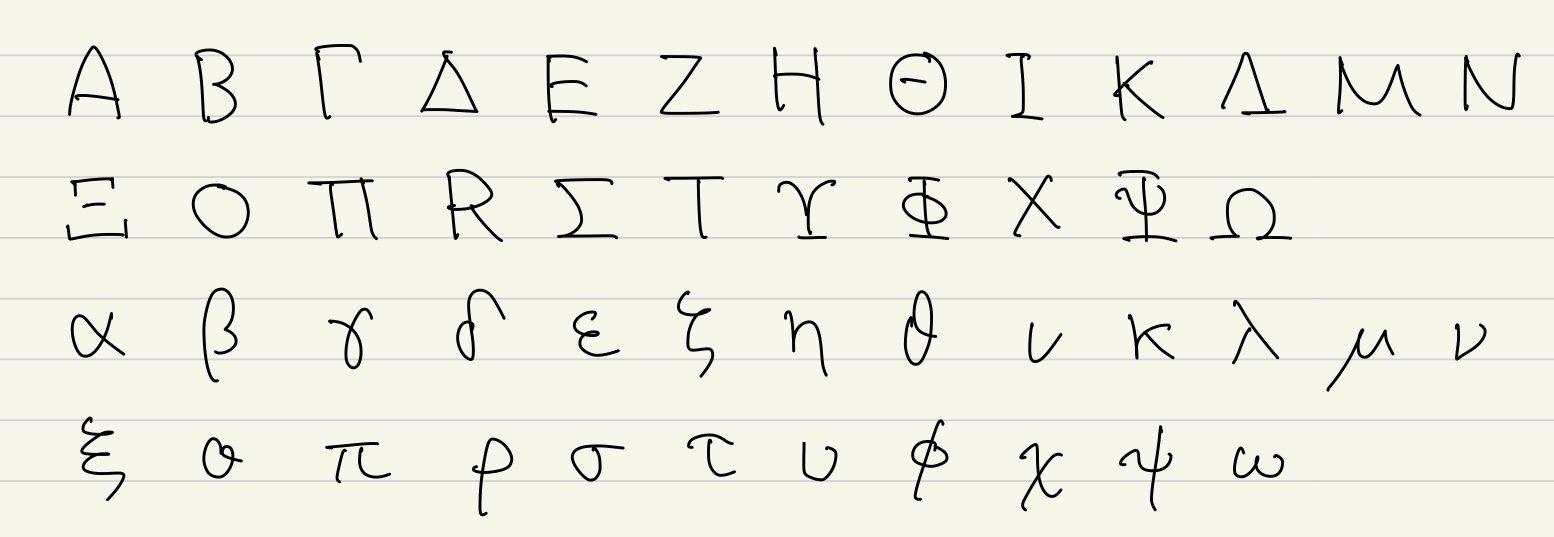 Α Β Γ Δ Ε Ζ Η Θ Ι Κ Λ Μ Ν
Ξ Ο Π R Σ Τ Υ Φ Χ Ψ Ω
α β γ δ ε ζ η θ ι κ λ μ ν
ξ ο π ρ σ τ υ ϕ χ ψ ω